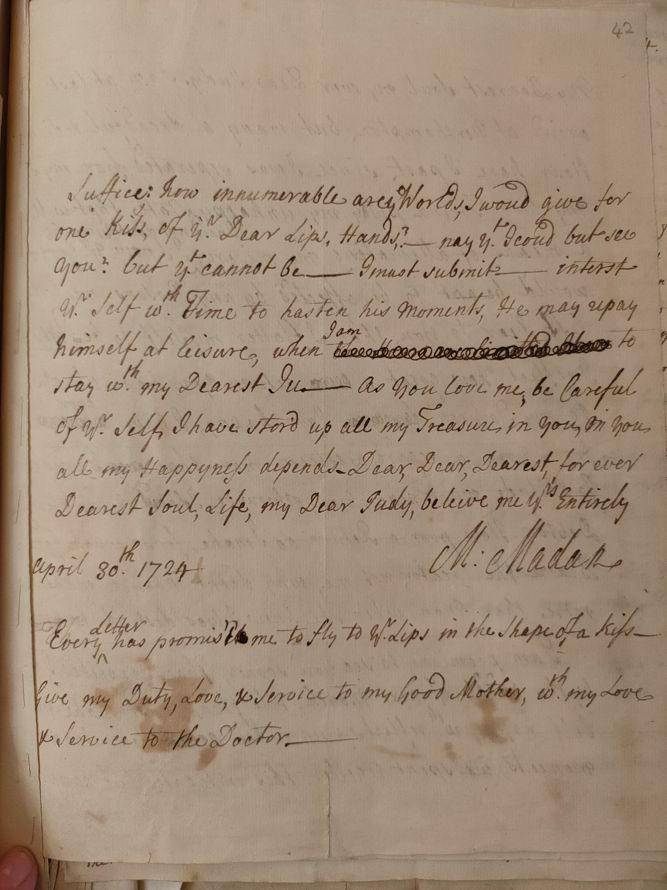 42
Suffice: how innumerable are yͤ Worlds, I woud give for
one Kiss, of Yʳ Dear Lips, Hands, — nay yᵗ I coud but see
You? but yᵗ cannot be — I must submit — interst
Yʳ Self wᵗʰ Time to hasten his moments, He may repay
himself at leisure, when I am to
stay wᵗʰ my Dearest Ju — As you love me, be Careful
of Yʳ Self, I have stor'd up all my Treasure in you, in you
all my Happyness depends — Dear, Dear, Dearest, for ever
Dearest Soul, Life, my Dear Judy, beleive me Yʳˢ Entirely
M: Madan
April 30ᵗʰ 1724
Every Letter has promis'd me to fly to Yʳ Lips in the Shape of a Kiss —
Give my Duty, Love, & Service to my Good Mother, wᵗʰ my Love
& Service to the Doctor. —